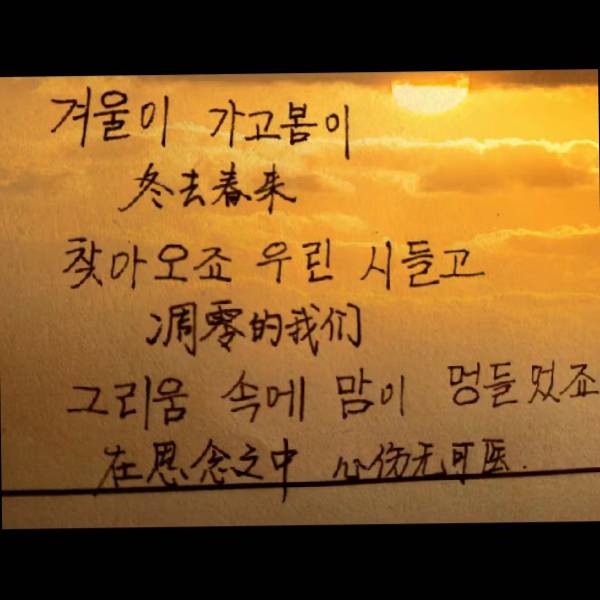 겨울이 가고봄이
冬去春来
찾아오죠 우린 시들고
凋零的我们
그리움 속에 맘이 멍들었죠
在思念之中 心伤无可医.